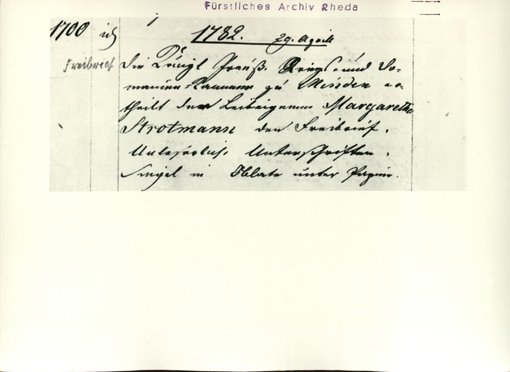 Fürstliches Archiv Rheda
1700 ich 1782. 29. April
Freibrief Die Königl. Preuß. Kriegs- und Do-
mainen-Kammer zu Minden er-
theilt der Leibeigenen Margarethe
Strotmann den Freibrief.
Unleserliche Unterschriften.
Siegel in Oblate unter Papier.